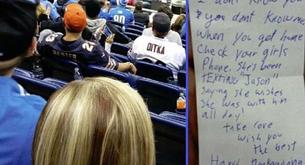 HESTER
25
DITKA
I don't know you
& you don't know me
when you get home
Check your girls
Phone. She's been
TEXTING "Jason"
saying she wishes
She was with him
all day!
take care
wish you
the best